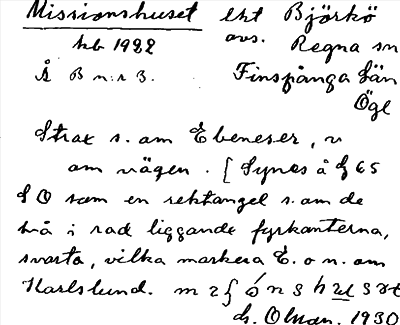 Missionshuset ekt Björkö
hb 1922 avs. Regna sn
Å B n:r 3. Finspånga län
Ögl
Strax s. om Ebeneser, v
om vägen. [Synes å
SO som en rektangel s. om de
två i rad liggande fyrkanterna,
svarta, vilka markera E. o n. om
Karlslund.
1930